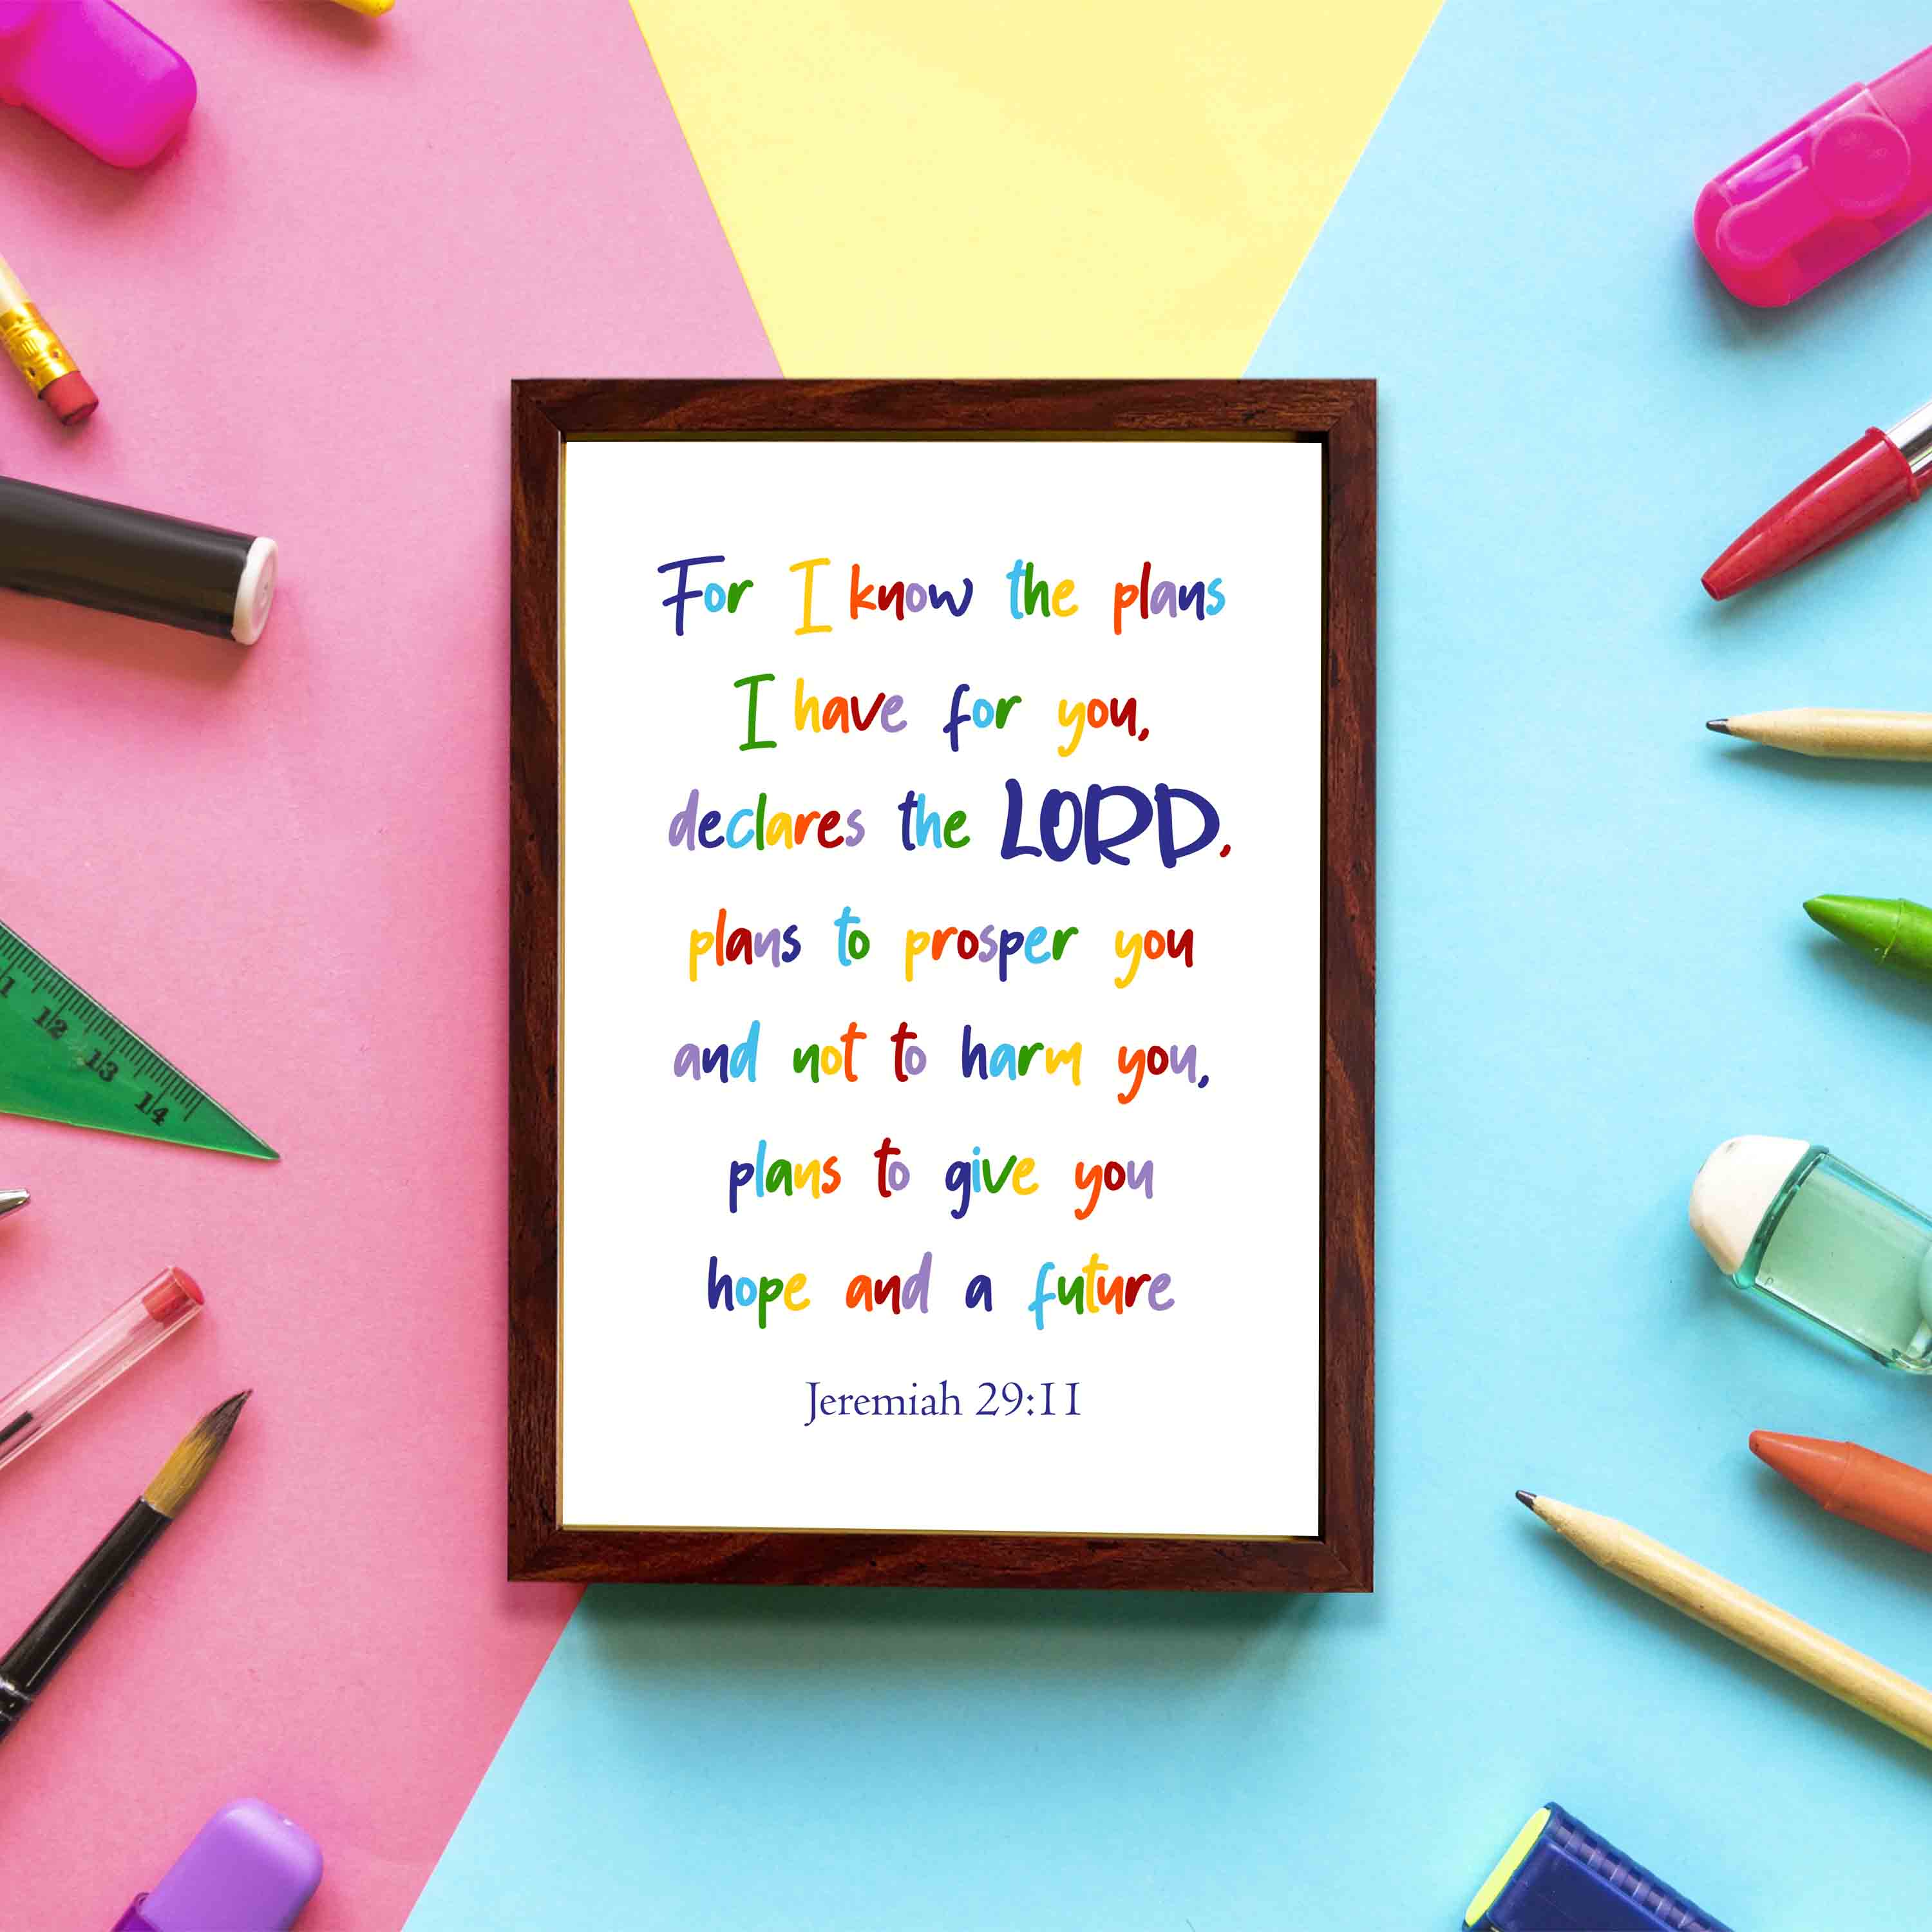 For I know the plans
I have for you,
declares the LORD,
plans to prosper you
and not to harm you,
plans to give you
hope and a future
Jeremiah 29:11
1 12 13 14